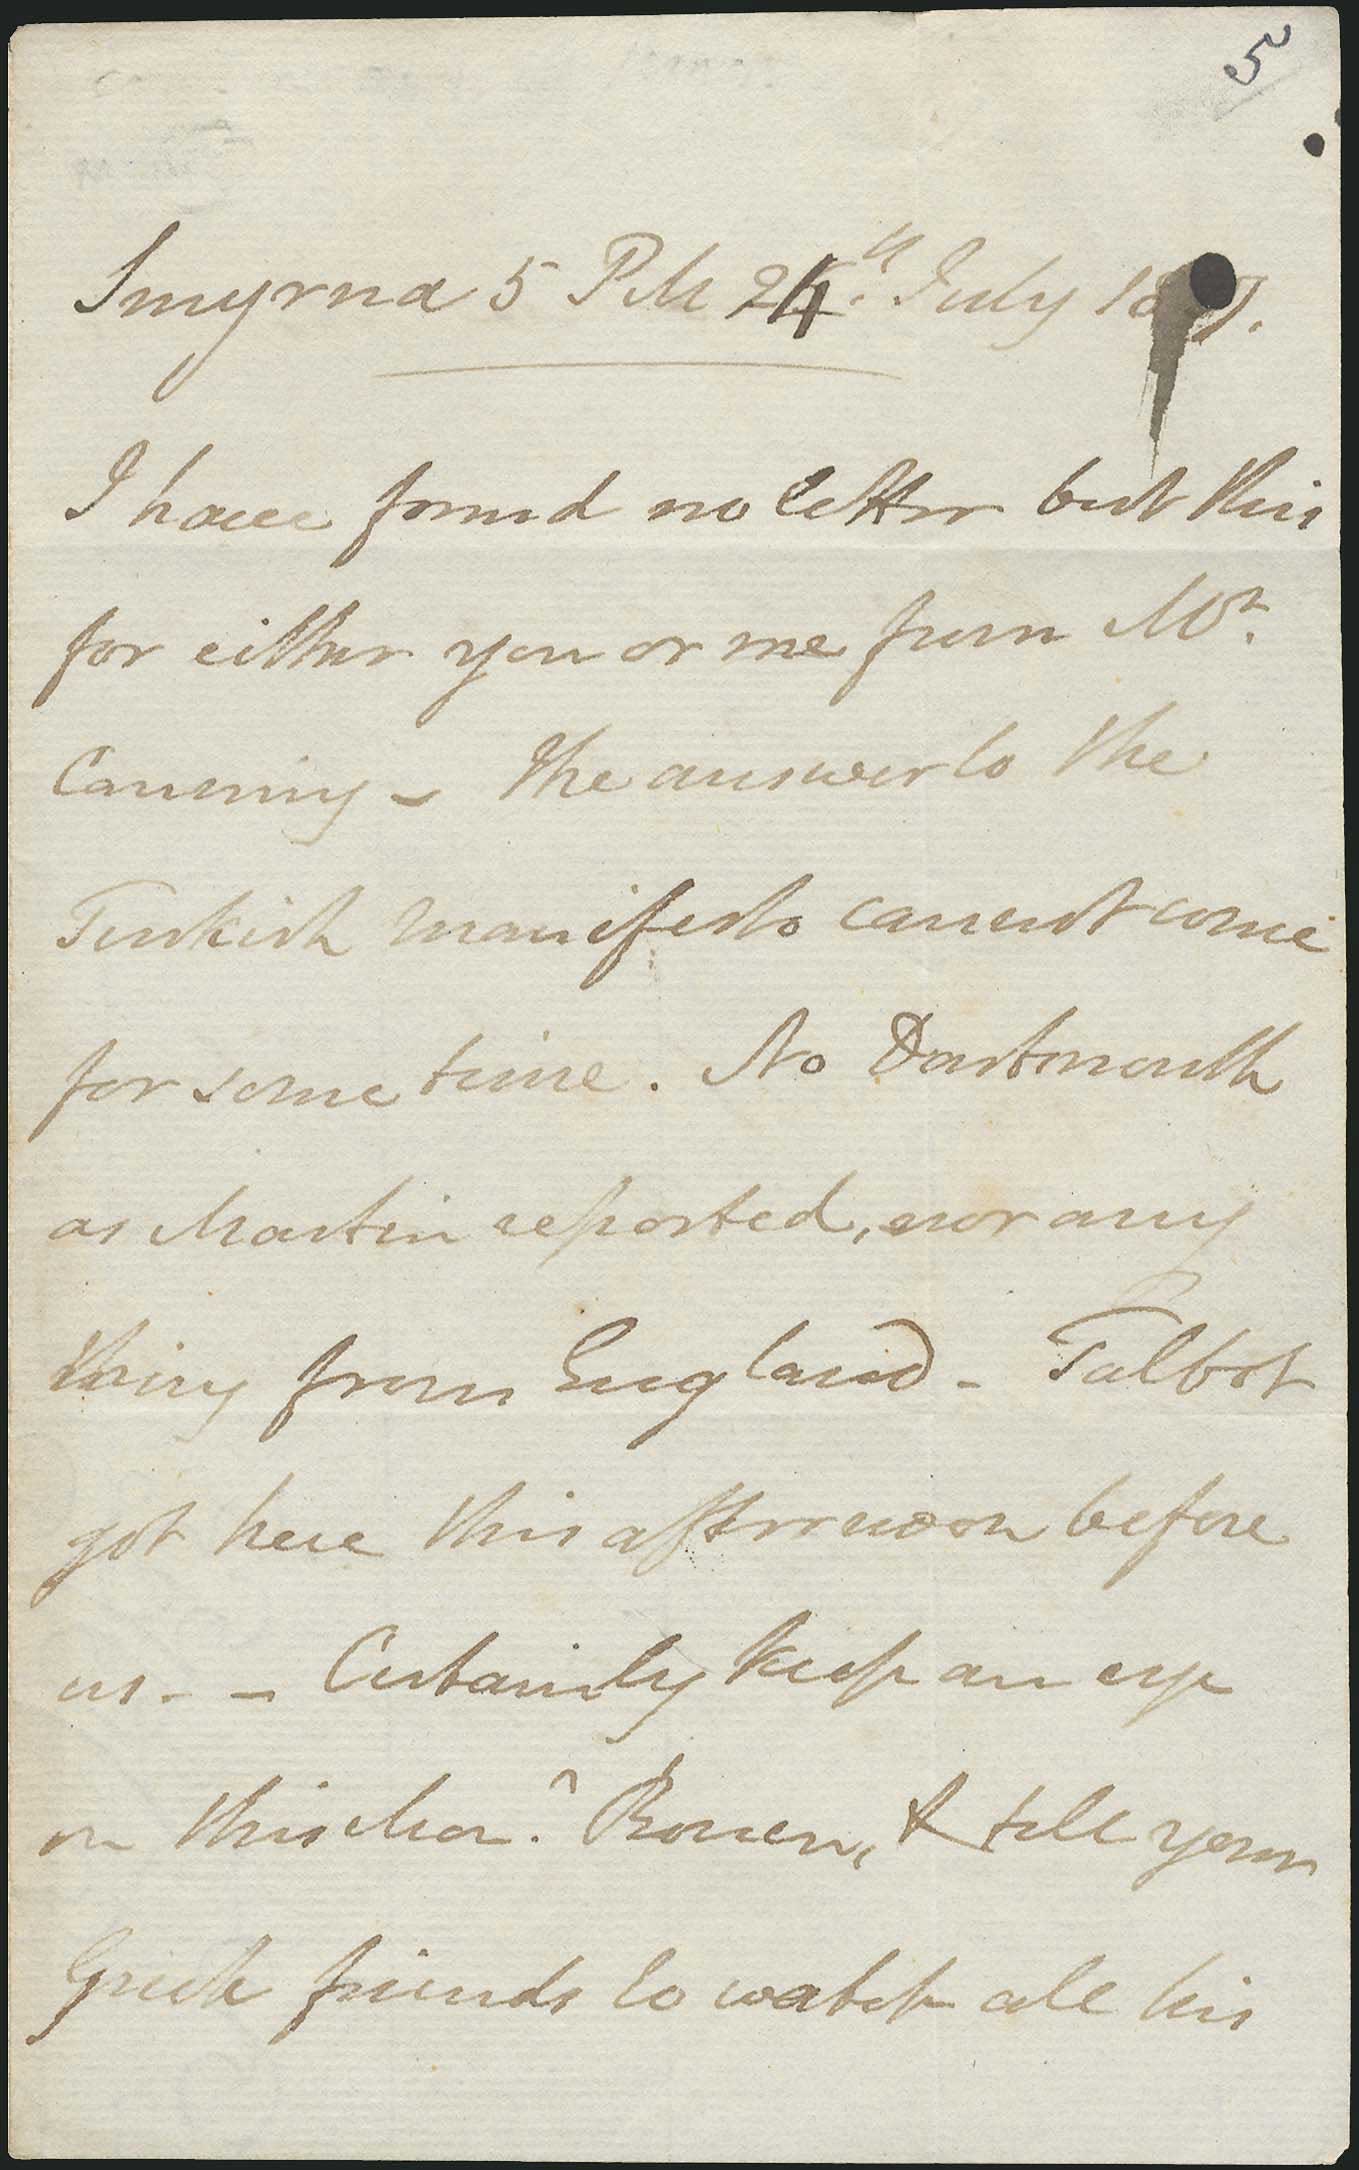 5
Smyrna 5 PM 24th. July 18 7.
I have found no letter but this
for either you or me from Mr.
Canning – The answer to the
Turkish Manifesto cannot come
for some time. No Dartmouth
as Martin reported, nor any
thing from England – Talbot
got here this afternoon before
us. – Certainly keep an eye
on this Monr. Rouen, & tell your
Greek friends to watch all his